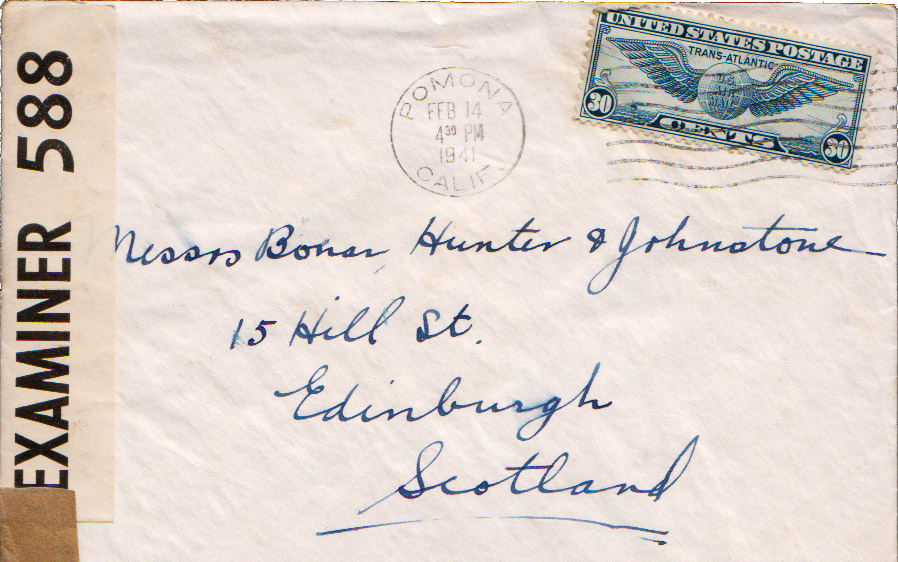 EXAMINER 588
POMONA
FEB 14
4 30 PM
1941
CALIF.
UNITED STATES POSTAGE
TRANS-ATLANTIC
U.S.
AIR
MAIL
30 CENTS 30
Messrs Bonar, Hunter & Johnstone
15 Hill St.
Edinburgh
Scotland